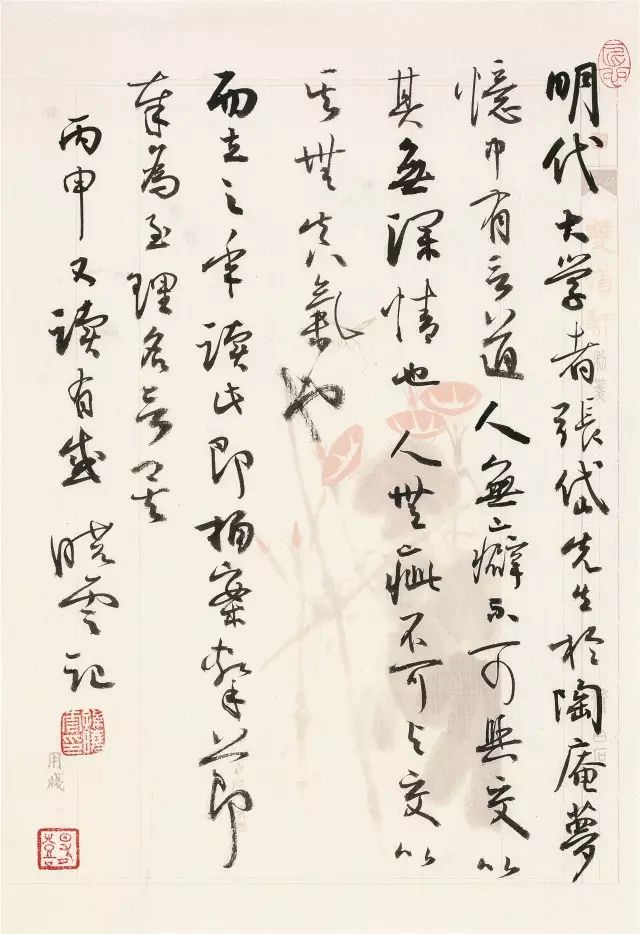 明代大学者張岱先生於陶庵夢
憶中有言道人無癖不可與交以
其無深情也人無疵不可与交以
其無真氣也
而立之年读此即拍案擊節
奉為至理名言
丙申又读有感 晓雲记
用牋